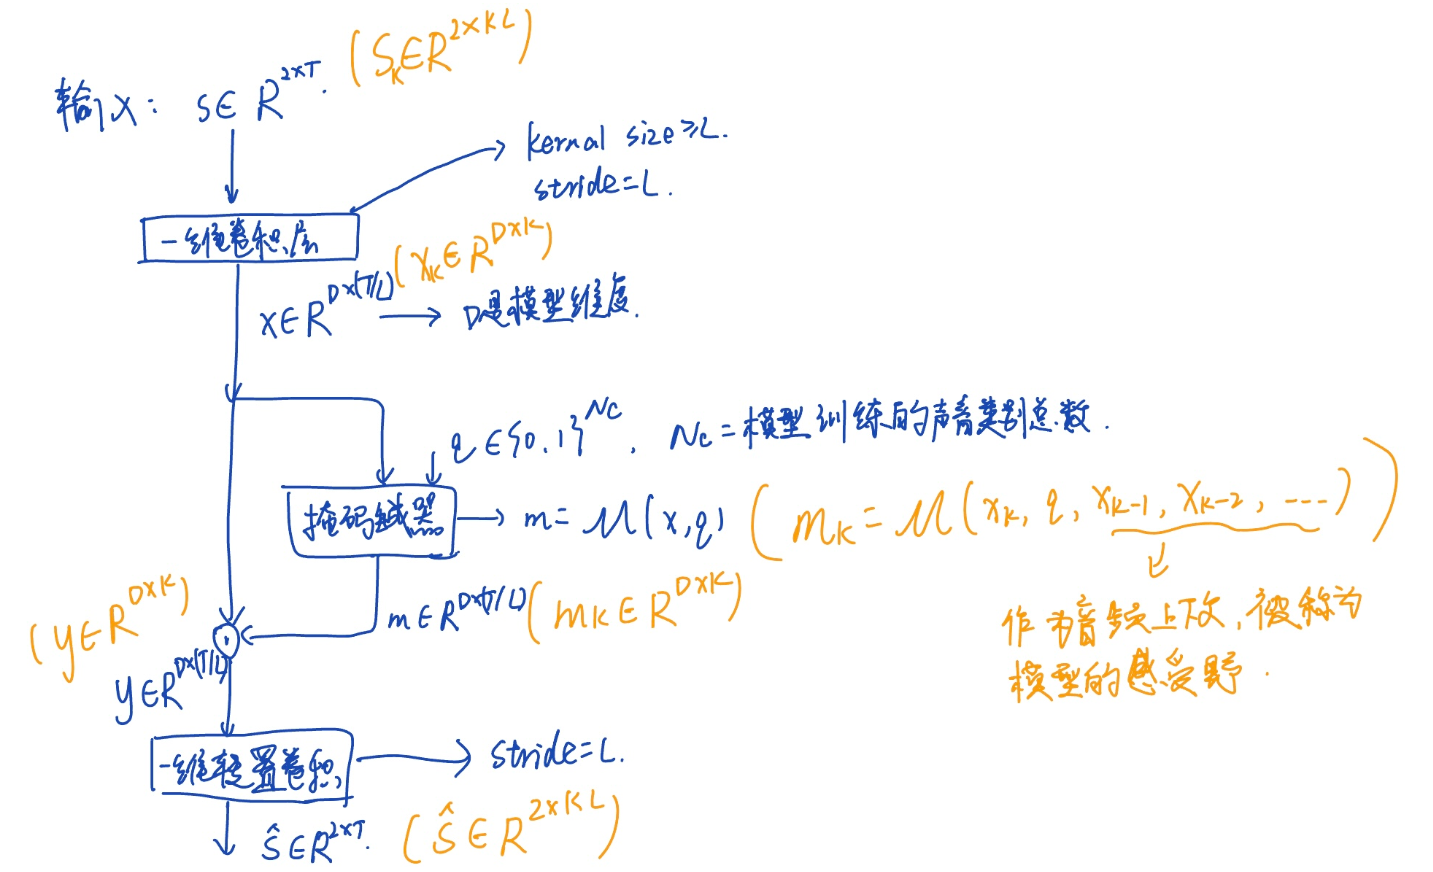 输入: S∈R^{2×T}. (S_K∈R^{2×KL})
kernal size≥L.
stride=L.
一维卷积层
x∈R^{D×(T/L)} (x_K∈R^{D×K})
D是模型维度.
q∈{0,1}^{Nc}, Nc=模型训练的声音类别总数.
掩码生成器
m=M(x,q) (m_K=M(x_K, q, x_{K-1}, x_{K-2}, ----))
m∈R^{D×(T/L)} (m_K∈R^{D×K})
作为音频上下文,被称为
模型的感受野.
(y∈R^{D×K})
y∈R^{D×(T/L)}
一维转置卷积
stride=L.
ŝ∈R^{2×T}. (ŝ∈R^{2×KL})